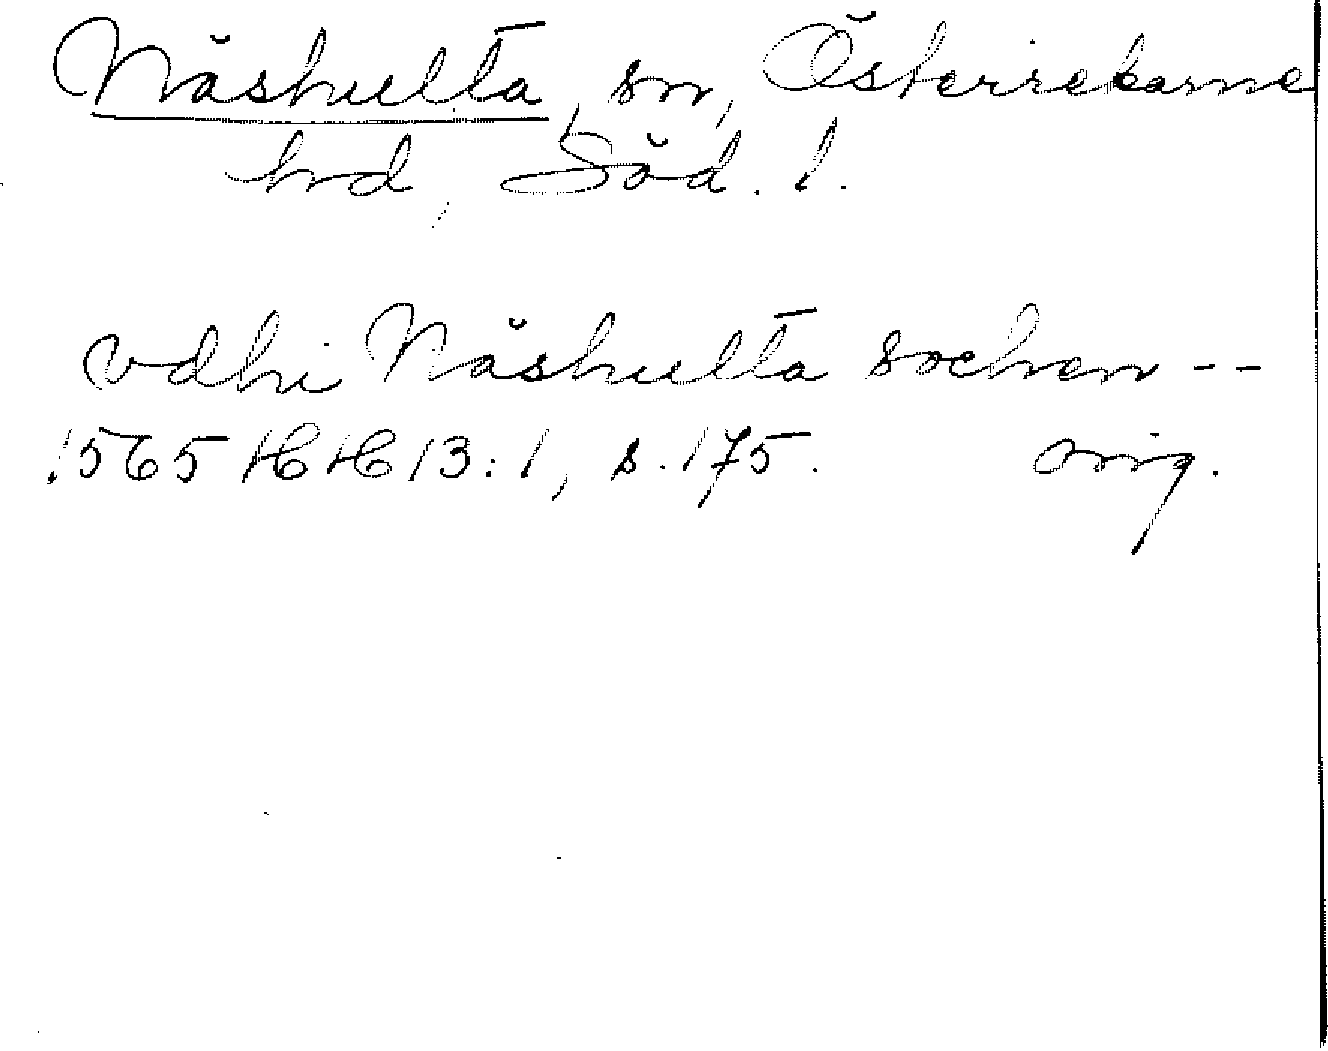 Näshulta, sn, Österrekarne
hrd, Söd. l.
vdhi Näshulta sochen --
1565 HH 13:1, s. 175. orig.